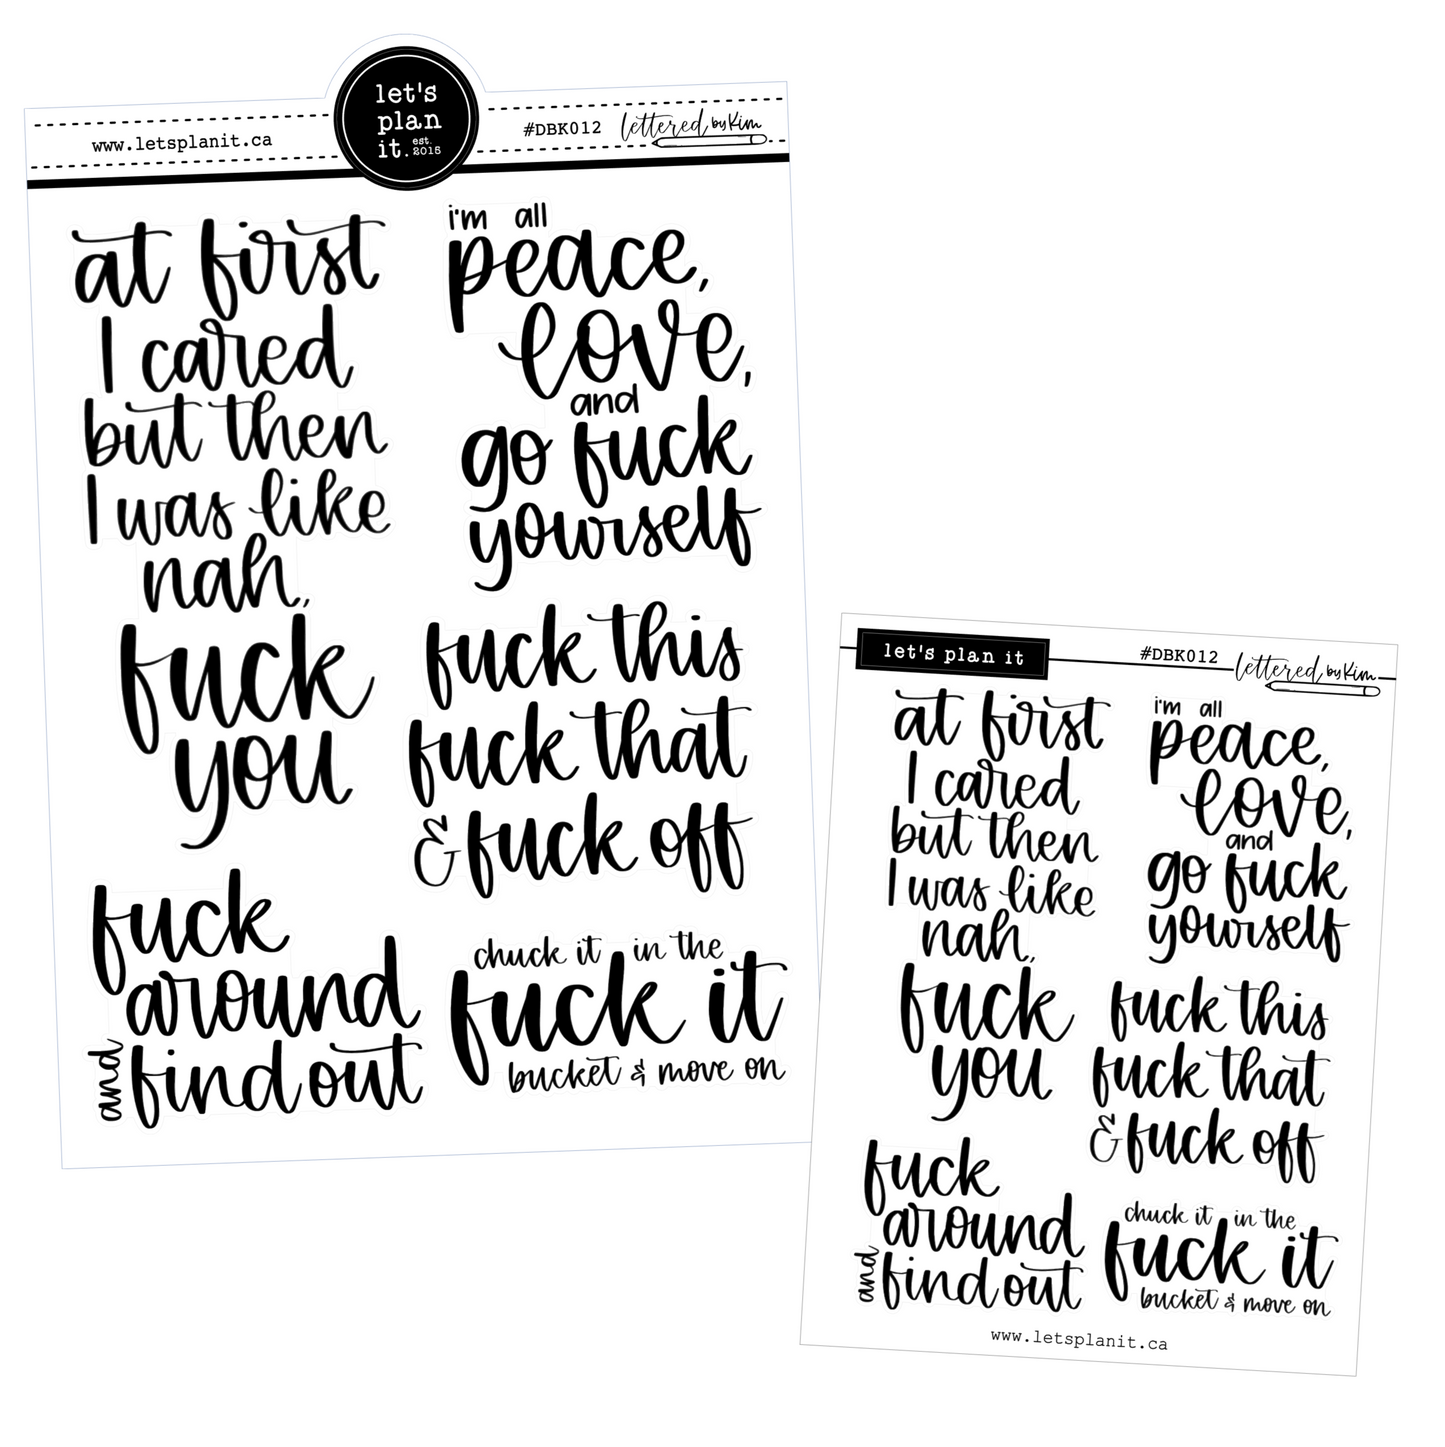 let's
plan
it. est. 2015
www.letsplanit.ca
#DBK012 lettered by Kim
at first
I cared
but then
I was like
nah,
fuck
you
i'm all
peace,
love,
and
go fuck
yourself
fuck this
fuck that
& fuck off
fuck
around
and
find out
chuck it in the
fuck it
bucket & move on
let's plan it
#DBK012 lettered by Kim
at first
I cared
but then
I was like
nah,
fuck
you
i'm all
peace,
love,
and
go fuck
yourself
fuck this
fuck that
& fuck off
fuck
around
and
find out
chuck it in the
fuck it
bucket & move on
www.letsplanit.ca